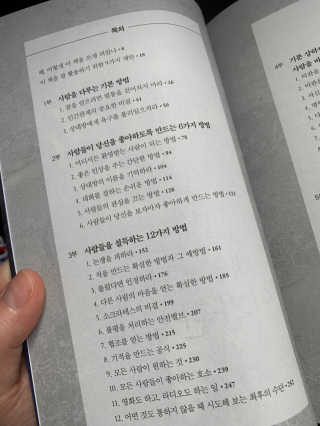 목차
왜, 어떻게 이 책을 쓰게 되었나 • 6
이 책을 잘 활용하기 위한 9가지 제안 • 18
1부 사람을 다루는 기본 방법
1. 꿀을 얻으려면 벌통을 걷어차지 마라 • 26
2. 인간관계의 중요한 비결 • 41
3. 상대방에게 욕구를 불러일으켜라 • 56
2부 사람들이 당신을 좋아하도록 만드는 6가지 방법
1. 어디서든 환영받는 사람이 되는 방법 • 78
2. 좋은 인상을 주는 간단한 방법 • 94
3. 상대방의 이름을 기억하라 • 104
4. 대화를 잘하는 손쉬운 방법 • 114
5. 사람들의 관심을 끄는 방법 • 128
6. 사람들이 당신을 보자마자 좋아하게 만드는 방법 • 133
3부 사람들을 설득하는 12가지 방법
1. 논쟁을 피하라 • 152
2. 적을 만드는 확실한 방법과 그 예방법 • 161
3. 틀렸다면 인정하라 • 176
4. 다른 사람의 마음을 얻는 확실한 방법 • 185
5. 소크라테스의 비결 • 199
6. 불평을 처리하는 안전밸브 • 207
7. 협조를 얻는 방법 • 215
8. 기적을 만드는 공식 • 225
9. 모든 사람이 원하는 것 • 230
10. 모든 사람들이 좋아하는 호소 • 239
11. 영화도 하고, 라디오도 하는 일 • 247
12. 어떤 것도 통하지 않을 때 시도해 보는 최후의 수단 • 252